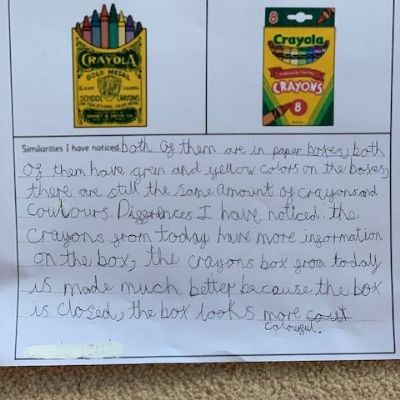 CRAYOLA
GOLD MEDAL
SCHOOL CRAYONS
8
Crayola
CRAYONS
8
Similarities I have noticed both of them are in paper boxes, both
of them have gren and yellow colors on the boxes,
there are still the same amount of crayons and
coulours. Differences I have noticed: the
crayons from today have more information
on the box, the crayons box from today
is made much better because the box
is closed, the box looks more cout
colourful.